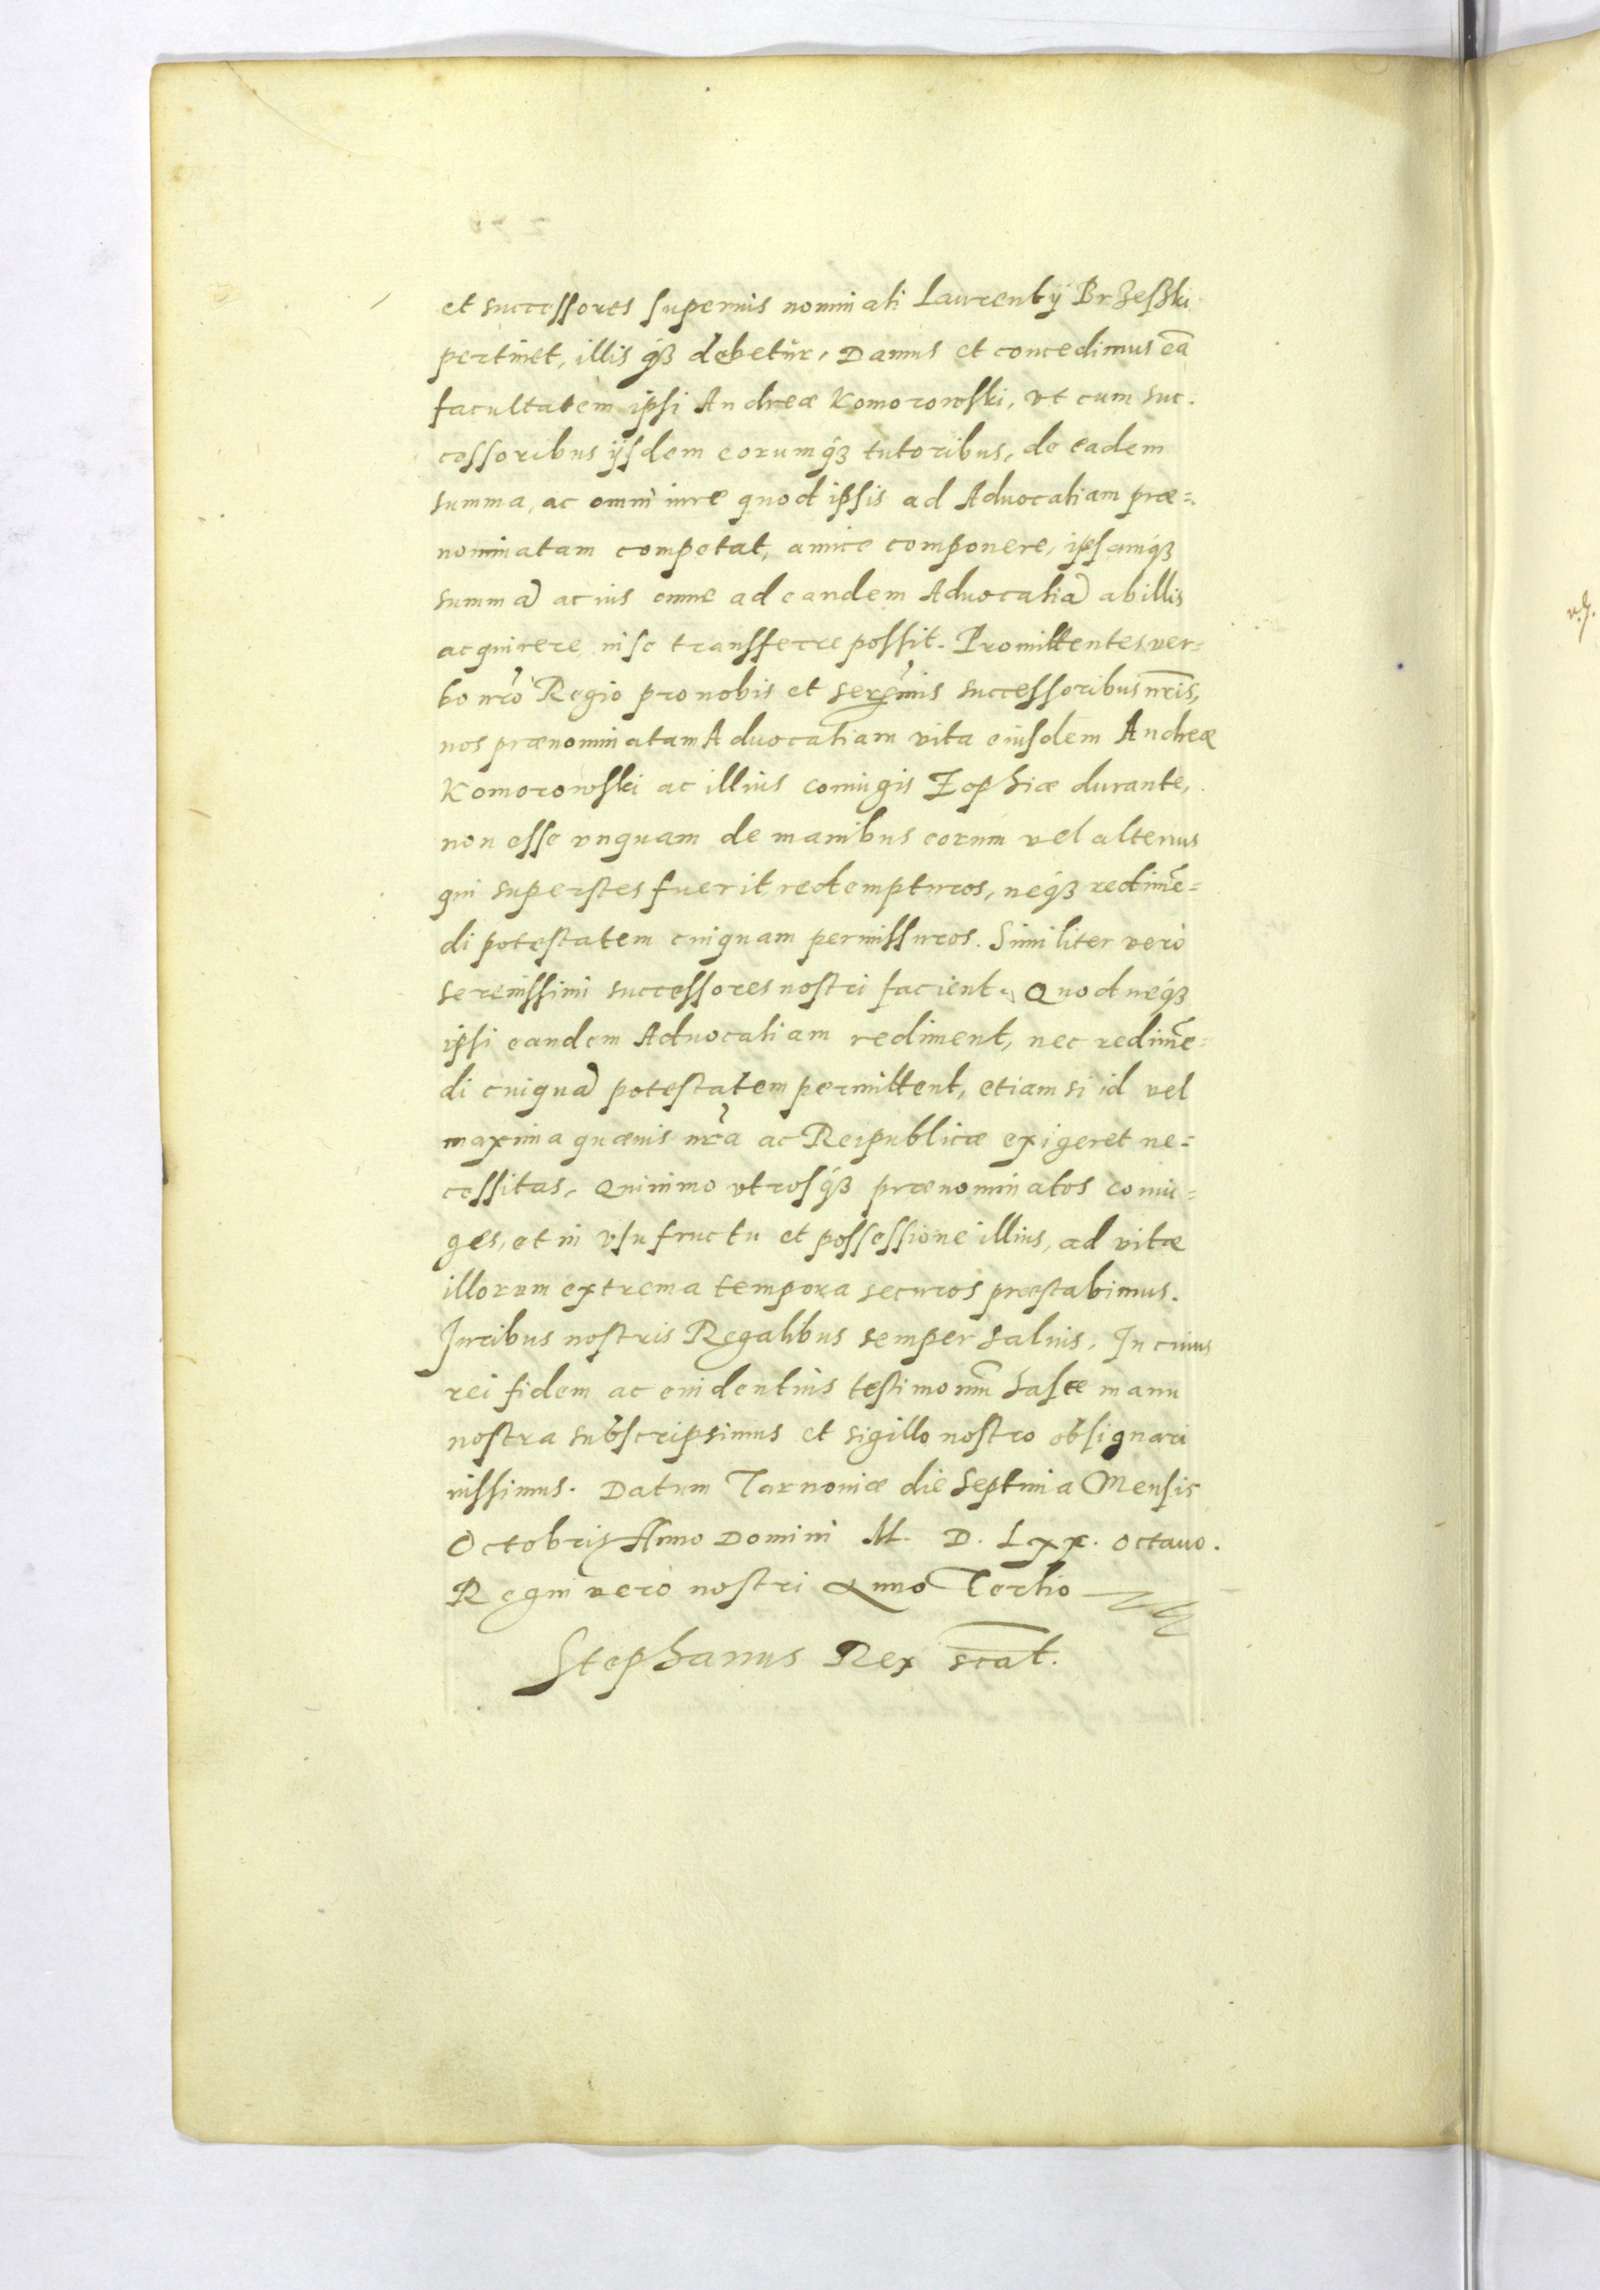 et successores superius nominati Laurentij Brzeski
pertinet, illis q3 debetur, Damus et concedimus eā
facultatem ipsi Andreæ Komorowski, vt cum suc-
cessoribus ijsdem eorumq3 tutoribus, de eadem
summa, ac omni iure quod ipsis ad Aduocatiam præ=
nominatam competat, amice componere, ipsamq3
summā ac ius omne ad eandem Aduocatiā ab illis
acquirere in se transferre possit. Promittentes ver=
bo nr̃o Regio pro nobis et serẽmis successoribus nr̃is,
nos prænominatam Aduocatiam vita eiusdem Andreæ
Komorowski ac illius coniugis Zophiæ durante,
non esse vnquam de manibus eorum vel alterius
qui superstes fuerit redempturos, neq3 redimē=
di potestatem cuiquam permissuros. Similiter vero
serenissimi successores nostri facient. Quod neq3
ipsi eandem Aduocatiam rediment, nec redimē=
di cuiquā potestatem permittent, etiam si id vel
maxima quæuis nr̃a ac Reipublicæ exigeret ne=
cessitas, Quinimo vtrosq3 prænominatos coniu=
ges, et in vsufructu et possessione illius, ad vitæ
illorum extrema tempora securos præstabimus.
Iuribus nostris Regalibus semper saluis. In cuius
rei fidem ac euidentius testimoniū hasce manu
nostra subscripsimus et sigillo nostro obsignari
iussimus. Datum Tarnouiæ die septima Mensis
Octobris Anno Domini M. D. Lxx. octauo.
Regni vero nostri Anno Tertio
Stephanus Rex scat.